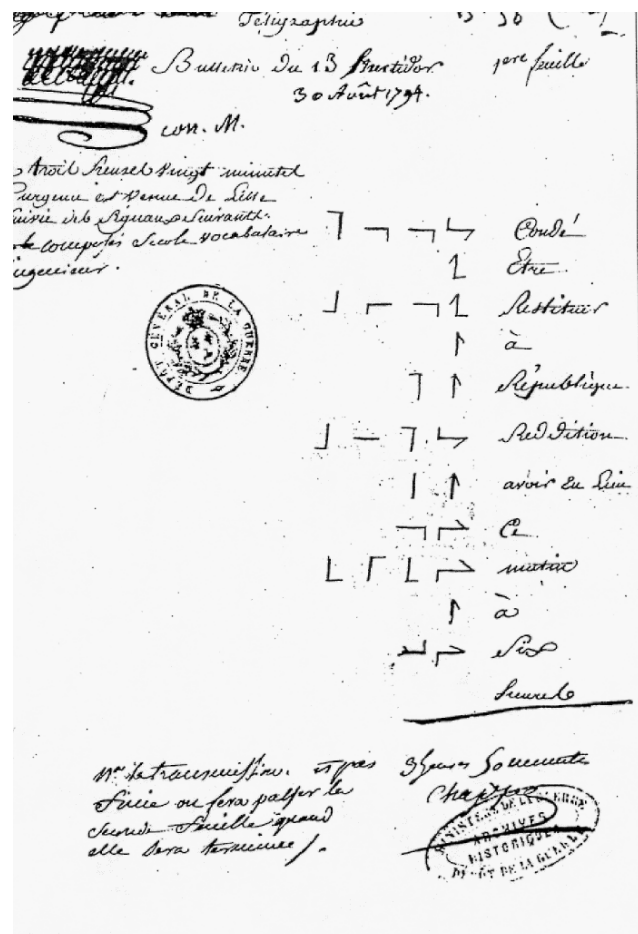 Télégraphie
Bulletin du 13 fructidor 1ere feuille
30 Août 1794.
con. M.
trois heures vingt minutes
urgence est venue de Lille
suivie des signaux suivants.
composés selon vocabulaire
ingenieur.
Condé
Etre
Restituer
à
République
Reddition
avoir eu lieu
Ce
matin
à
Six
heures
DÉPÔT GÉNÉRAL DE LA GUERRE
la transmission. est pas
finie on fera passer la
seconde feuille quand
elle sera terminée /.
3 heures
Chappe
MINISTERE DE LA GUERRE
ARCHIVES
HISTORIQUES
DÉPÔT DE LA GUERRE